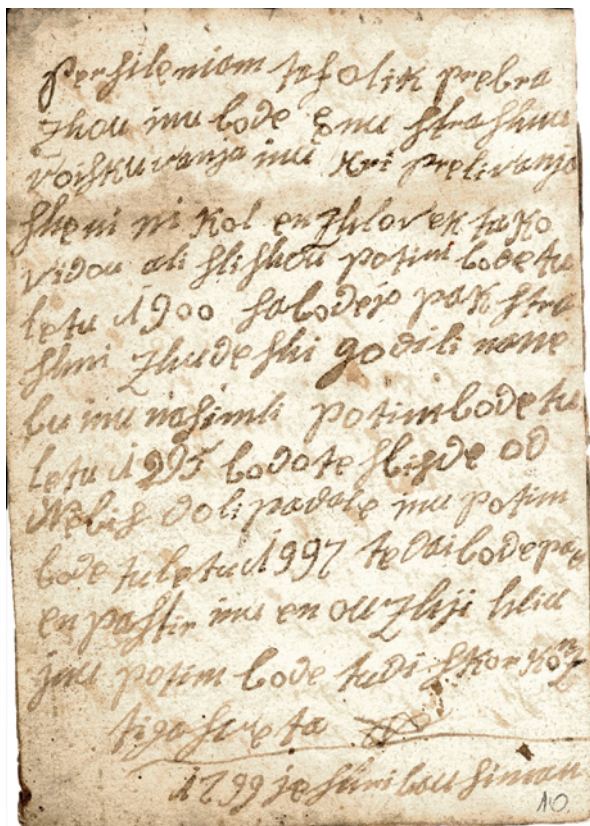 pershleniam tofolik prebra
zhou inu bode enu strashnu
voiskuvanja inu kri prelivanja
skeni ni kol en zhlovek tako
vidou ali slishou potim bode tu
letu 1900 sabodejo pak stra
shni zhudeshi godili nane
bu inu nasimli potim bode tu
letu 1995 bodo te sbisde od
Nebis doli padale inu potim
bode tu letu 1997 tedai bode pa
en pastir inu en ouzhji hliu
jnu potim bode tudi skor konz
tiga sveta
1799 je shribou Simon
10.